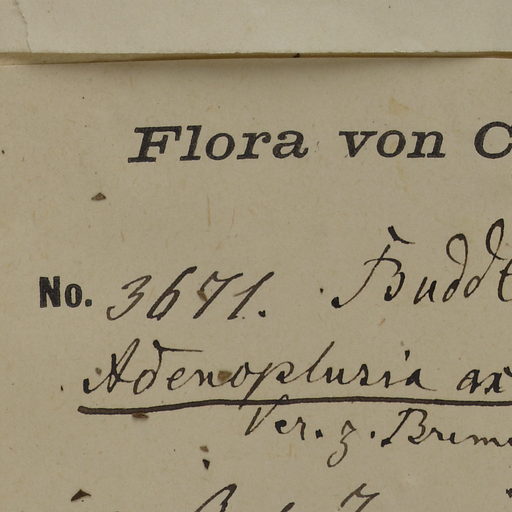 Flora von C
No. 3671. Budd
Adenoplusia ax
Ver. z. Brem